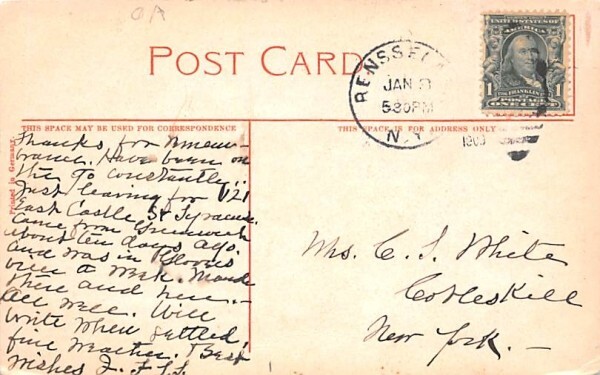 OA
POST CARD
RENSSELA
JAN 21
530PM
N.Y.
1909
UNITED STATES OF
AMERICA
FRANKLIN
1 1
POSTAGE
THIS SPACE MAY BE USED FOR CORRESPONDENCE
THIS SPACE IS FOR ADDRESS ONLY
Printed in Germany
Thanks, for
branch. Have been on
the go constantly.
Just leaving for 121
East Castle St Syracuse.
Came from Greenwich
about ten days ago.
and was in
over a week. Maude
there and here.–
All well. Will
write when settled,
fine weather. Best
wishes J. F. S.
Mrs. C. S. White
Cobleskill
New York. –